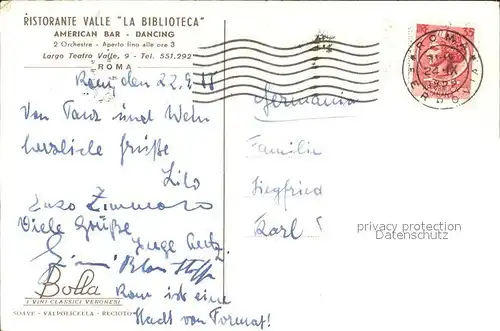 RISTORANTE VALLE "LA BIBLIOTECA"
AMERICAN BAR - DANCING
2 Orchestre - Aperto fino alle ore 3
Largo Teatro Valle, 9 - Tel. 551.292
ROMA
Rom, den 22.9.
Von Tanz und Wein
herzliche Grüße
Lilo
Zimmer
Viele Grüße
Inge
Rom ist eine
Stadt von Format!
Bolla
I VINI CLASSICI VERONESI
SOAVE - VALPOLICELLA - RECIOTO
ROMA
Germania
Familie
Siegfried
Karl
privacy protection
Datenschutz